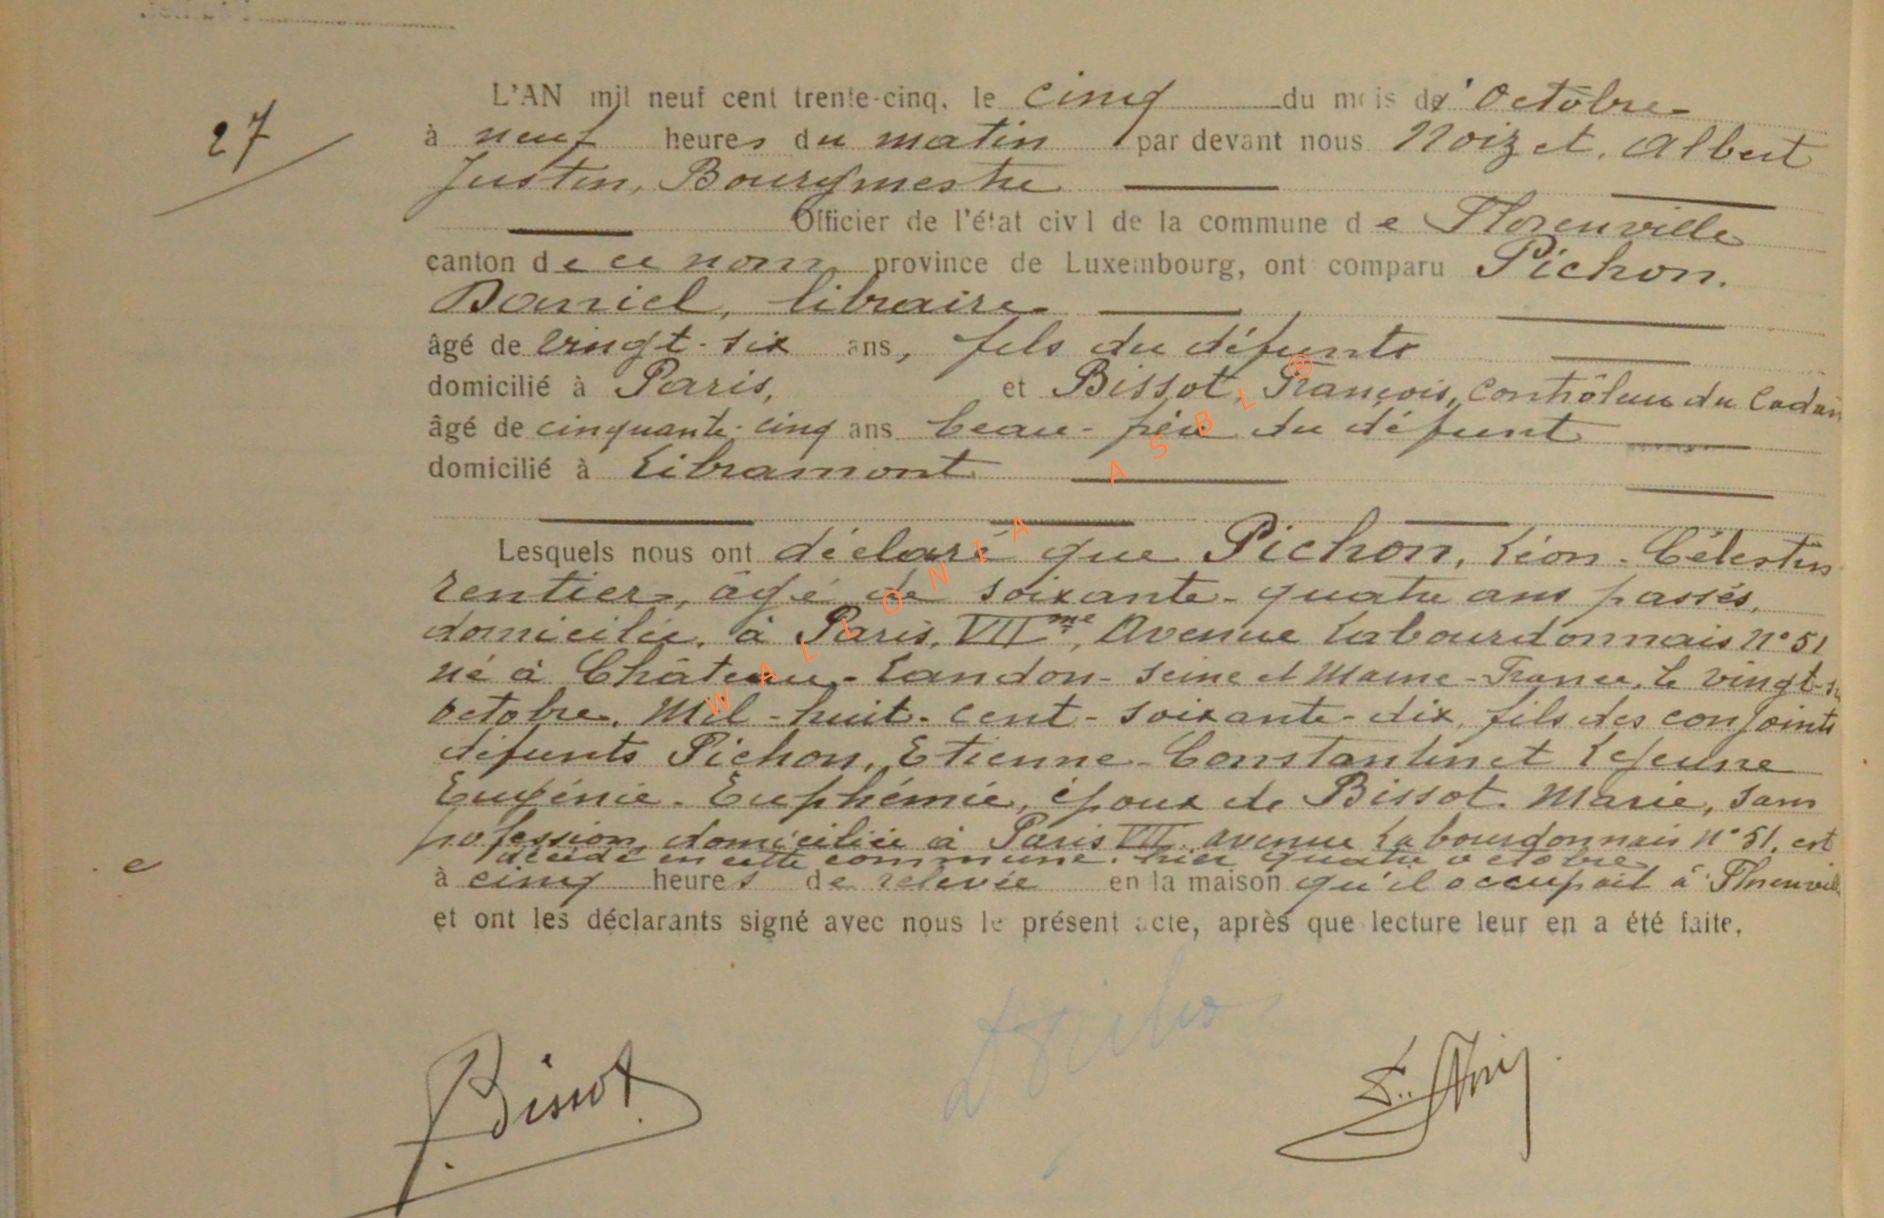 27
L'AN mil neuf cent trente-cinq, le cinq du mois d'Octobre
à neuf heures du matin par devant nous Noizet, Albert
Justin, Bourgmestre
Officier de l'état civil de la commune de Florenville
canton de ce nom province de Luxembourg, ont comparu Pichon,
Daniel, libraire
âgé de vingt-six ans, fils du défunt
domicilié à Paris, et Bissot, François, Contrôleur du Cadas
âgé de cinquante-cinq ans beau-père du défunt
domicilié à Libramont
Lesquels nous ont déclaré que Pichon, Léon-Célestin
rentier, âgé de soixante-quatre ans passés,
domicilié, à Paris, VIIme, Avenue Labourdonnais N° 51
né à Château-Landon-Seine et Marne-France, le vingt-
octobre, Mil-huit-cent-soixante-dix, fils des conjoints
défunts Pichon, Etienne-Constantin et Lejeune
Eugénie-Euphémie, époux de Bissot, Marie, sans
profession, domiciliée à Paris VII avenue Labourdonnais N° 51, est
décédé en cette commune, hier quatre octobre
à cinq heures de relevée en la maison qu'il occupait à Florenvill
et ont les déclarants signé avec nous le présent acte, après que lecture leur en a été faite.
e
Bissot
WALLONIA ASBL ®